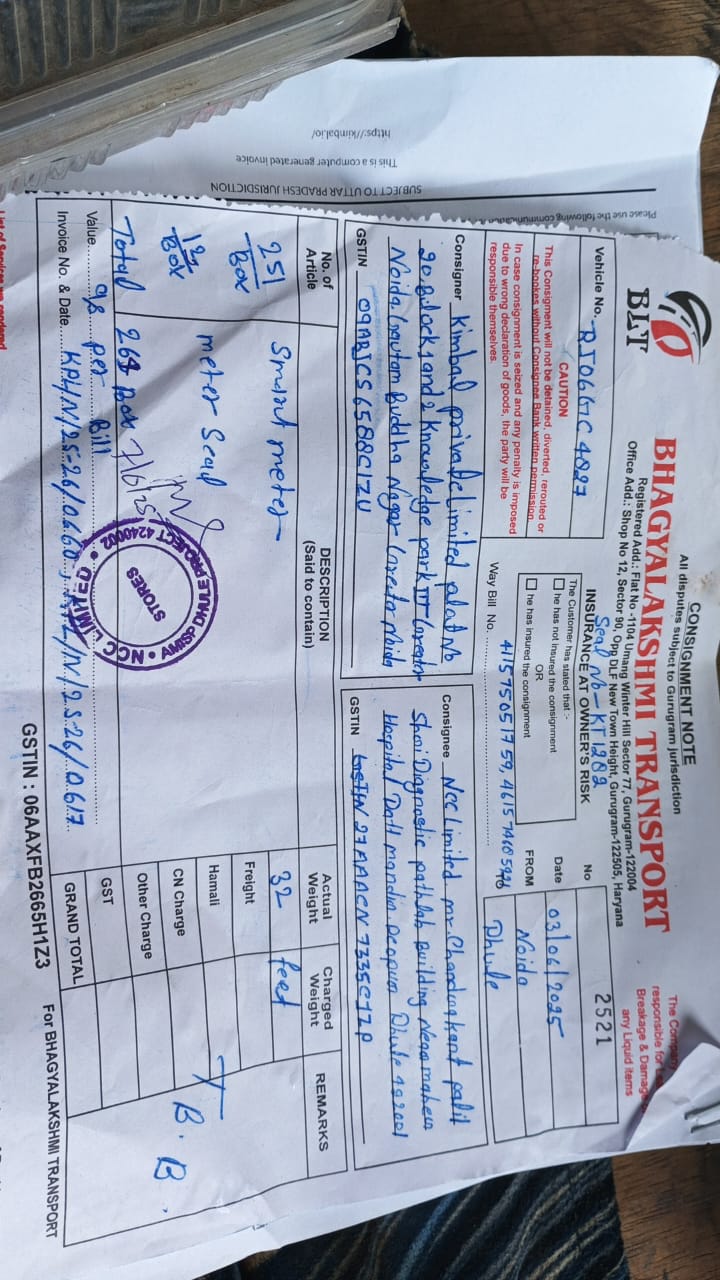 CONSIGNMENT NOTE
All disputes subject to Gurugram jurisdiction
BLT
BHAGYALAKSHMI TRANSPORT
Registered Add.: Flat No -1104 Umang Winter Hill Sector 77, Gurugram-122004
Office Add.: Shop No 12, Sector 90, Opp DLF New Town Height, Gurugram-122505, Haryana
The Company
responsible for
Breakage & Damage
any Liquid items
Vehicle No. RJ06GC4027
CAUTION
This Consignment will not be detained, diverted, rerouted or
re-bookes without Consignee Bank written permission.
In case consignment is seized and any penalty is imposed
due to wrong declaration of goods, the party will be
responsible themselves.
Seal No - KT1202
INSURANCE AT OWNER'S RISK
The Customer has stated that :-
he has not insured the consignment
OR
he has insured the consignment
Way Bill No.
No 2521
Date 03/06/2025
FROM Noida
Dhule
Consigner Kimbal private Limited plot No
20 Block 1 and 2 Knowledge park III Greater
Noida, Gautam Buddha Nagar Greater Noida
GSTIN
Consignee Ncc Limited mr. Chandrakant patil
Shri Diagnostic pathlab Building
Hospital Datt mandir Deopur
GSTIN
No. of Article
DESCRIPTION (Said to contain)
Actual Weight
Charged Weight
REMARKS
251 Box
Smart meter
32 feet
12 Box
meter Seal
Total
Box
7/6/25
T. B. B.
Freight
Hamali
CN Charge
Other Charge
GST
GRAND TOTAL
NCC LIMITED
AMISP DHULE PROJECT 4240002
STORES
Value as per Bill
Invoice No. & Date
GSTIN : 06AAXFB2665H1Z3
For BHAGYALAKSHMI TRANSPORT
List of Services we rendered
Please use the following communication
SUBJECT TO UTTAR PRADESH JURISDICTION
This is a computer generated invoice
https://kimbal.io/